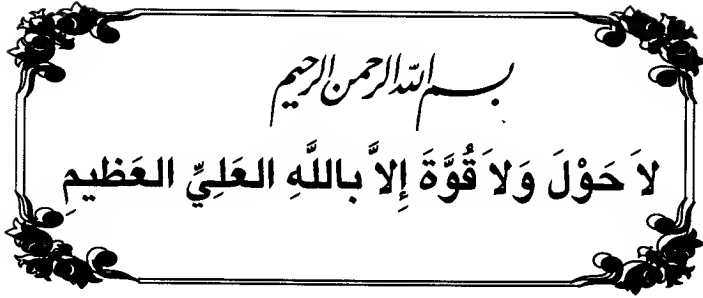 بسم الله الرحمن الرحيم
لاَ حَوْلَ وَلاَ قُوَّةَ إِلاَّ باللَّهِ العَلِيِّ العَظيمِ